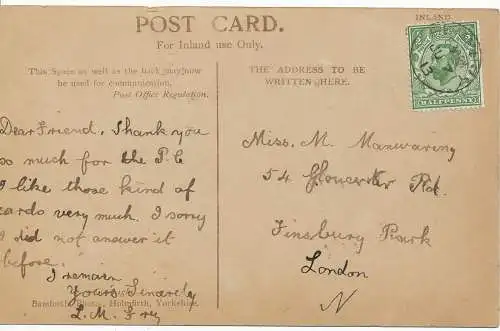 POST CARD.
For Inland use Only.
INLAND
This Space as well as the back may now
be used for communication.
Post Office Regulation.
THE ADDRESS TO BE
WRITTEN HERE.
HALFPENNY
Dear Friend, Thank you
so much for the P.C
I like those kind of
cards very much. I sorry
I did not answer it
before.
I remain
Yours Sincerely
L. M. Fry
Bamforth Holmfirth, Yorkshire.
Miss. M. Manwaring
54 Gloucester Rd.
Finsbury Park
London
N